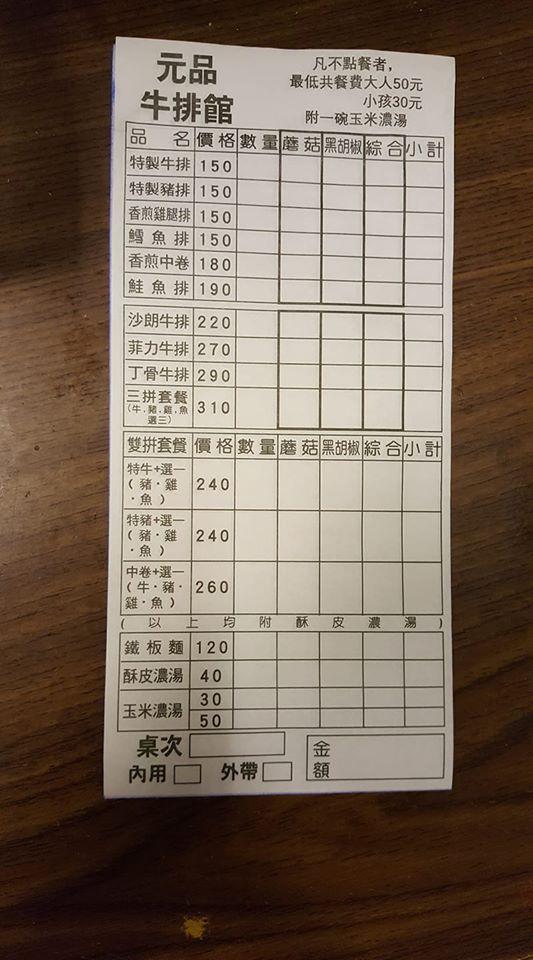 元品
牛排館
凡不點餐者，
最低共餐費大人50元
小孩30元
附一碗玉米濃湯
品名 價格 數量 蘑菇 黑胡椒 綜合 小計
特製牛排 150
特製豬排 150
香煎雞腿排 150
鱈魚排 150
香煎中卷 180
鮭魚排 190
沙朗牛排 220
菲力牛排 270
丁骨牛排 290
三拼套餐 310
(牛.豬.雞.魚
選三)
雙拼套餐 價格 數量 蘑菇 黑胡椒 綜合 小計
特牛+選一
(豬·雞 240
·魚)
特豬+選一
(豬·雞 240
·魚)
中卷+選一
(牛·豬· 260
雞·魚)
(以上均附酥皮濃湯)
鐵板麵 120
酥皮濃湯 40
玉米濃湯 30
50
桌次
內用 外帶
金額